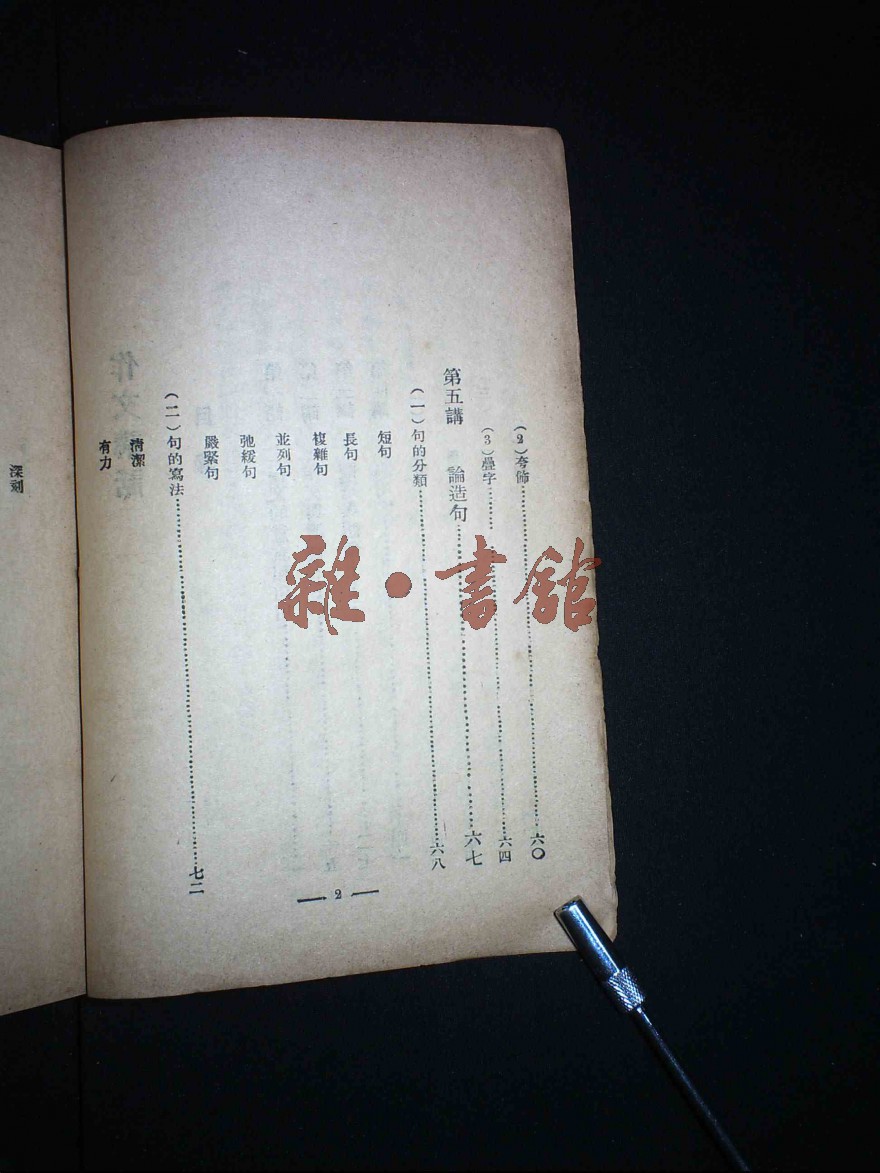 (2)夸飾……六〇
(3)疊字……六四
第五講 論造句……六七
(一)句的分類……六八
短句
長句
複雜句
並列句
弛緩句
嚴緊句
(二)句的寫法……七二
清潔
有力
深刻
— 2 —
雜·書館